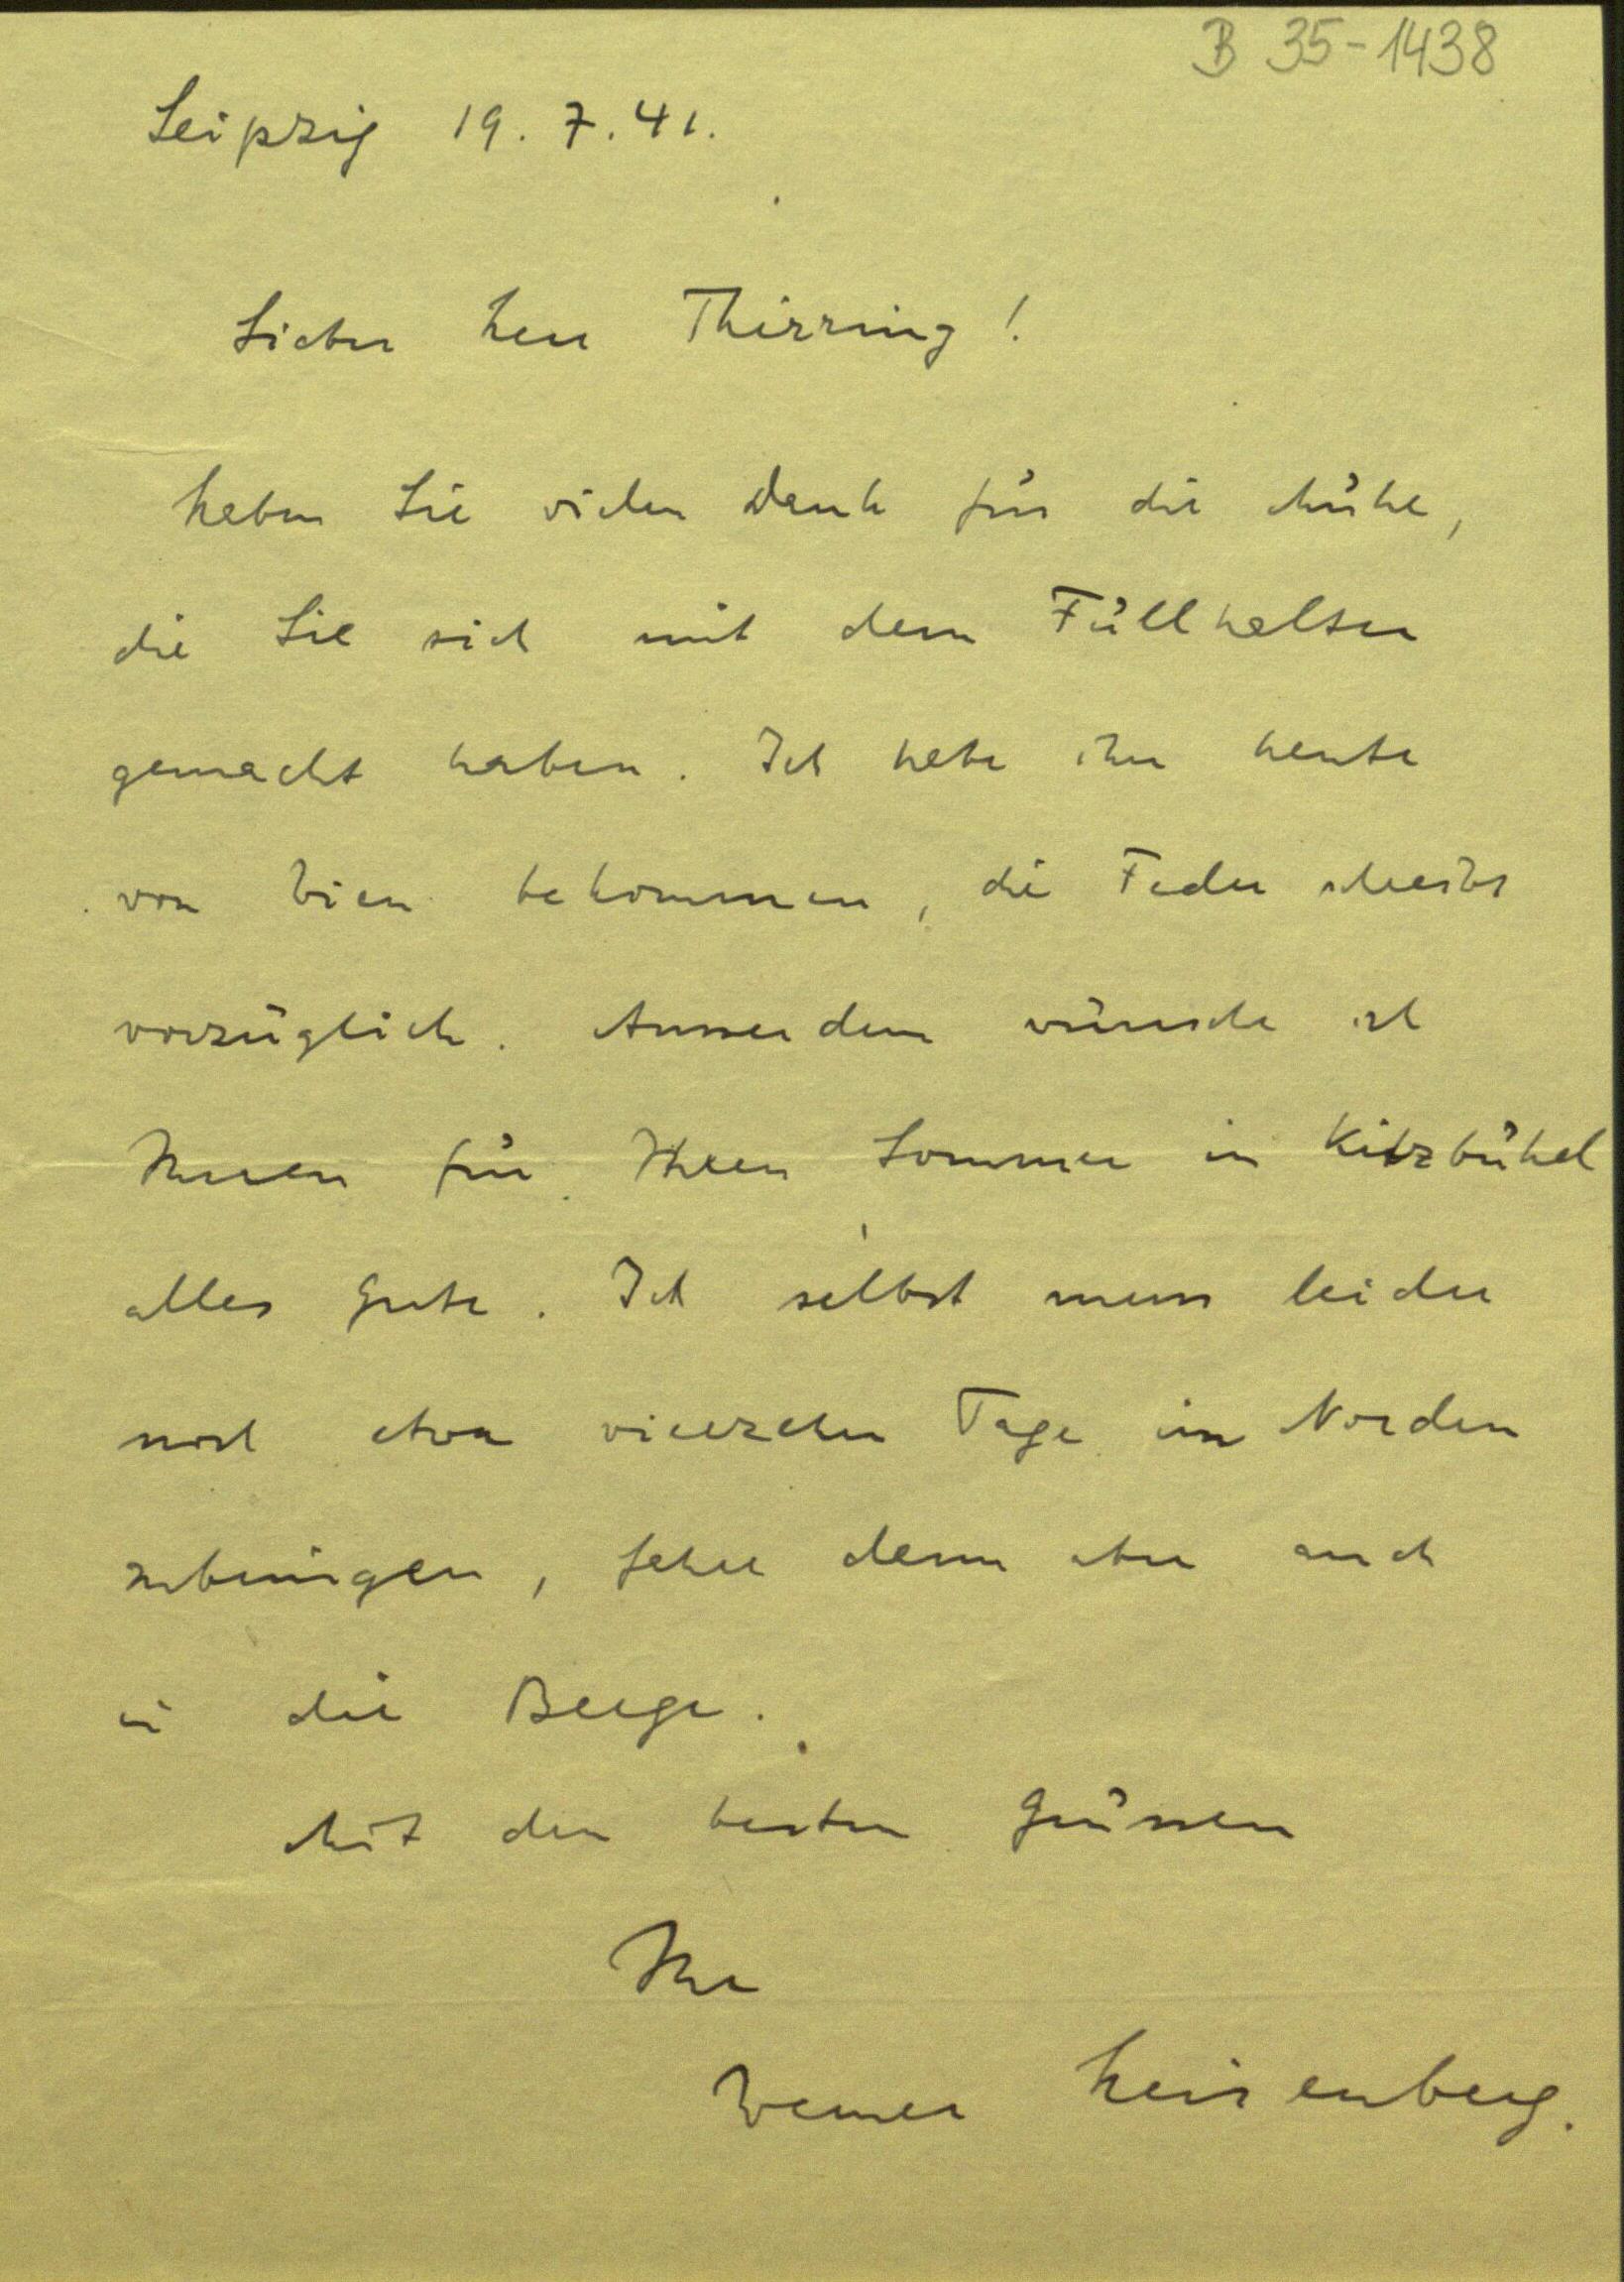 B 35-1438
Leipzig 19.7.41.
Lieber Herr Thirring!
Haben Sie vielen Dank für die Mühe,
die Sie sich mit dem Füllhalter
gemacht haben. Ich habe ihn heute
von Wien bekommen, die Feder schreibt
vorzüglich. Ausserdem wünsche ich
Ihnen für Ihren Sommer in Kitzbühel
alles Gute. Ich selbst muss leider
noch etwa vierzehn Tage im Norden
zubringen, fahre dann aber auch
in die Berge.
Mit den besten Grüssen
Ihr
Werner Heisenberg.